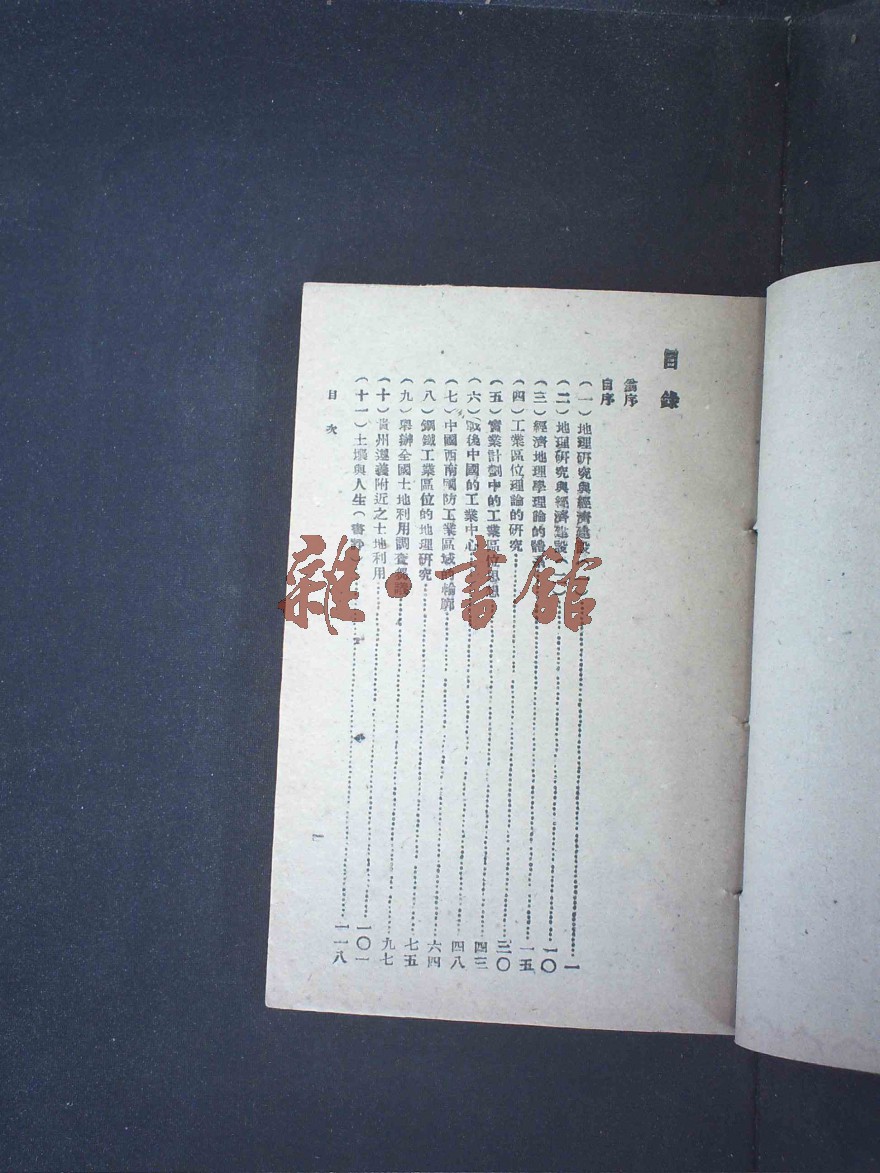 目錄
翁序
自序
(一)地理研究與經濟建設……一
(二)地理研究與經濟建設……一〇
(三)經濟地理學理論的體系……一五
(四)工業區位理論的研究……三〇
(五)實業計劃中的工業區位思想……四三
(六)戰後中國的工業中心……四八
(七)中國西南國防工業區域的輪廓……六四
(八)鋼鐵工業區位的地理研究……七五
(九)舉辦全國土地利用調查……九七
(十)貴州遵義附近之土地利用……一〇一
(十一)土壤與人生(書評)……一一八
目次
一
雜·書館